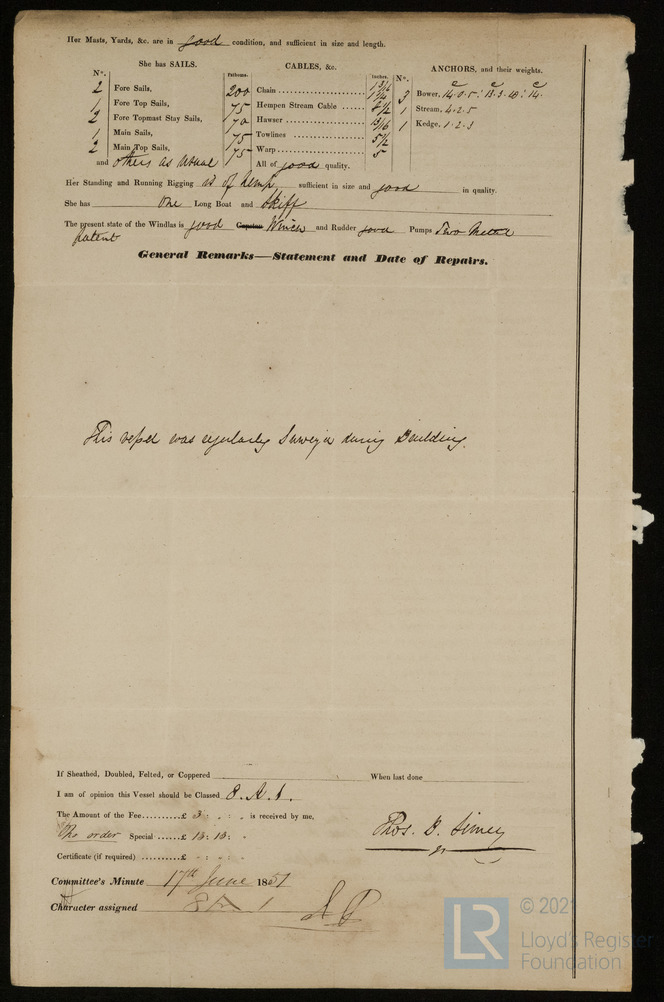 Her Masts, Yards, &c. are in good condition, and sufficient in size and length.
She has SAILS.
CABLES, &c.
ANCHORS, and their weights.
No.
Fathoms.
Inches.
No.
2 Fore Sails,
1 Fore Top Sails,
2 Fore Topmast Stay Sails,
1 Main Sails,
2 Main Top Sails,
and others as usual
200 Chain
75 Hempen Stream Cable
70 Hawser
75 Towlines 5 1/2
75 Warp 5
All of good quality.
3 Bower,
1 Stream, 4.2.5
1 Kedge, 1.2.3
Her Standing and Running Rigging is of hemp, sufficient in size and good in quality.
She has One Long Boat and Skiff
The present state of the Windlass is good Capstan Winces and Rudder good Pumps Two Metal
patent
General Remarks—Statement and Date of Repairs.
This vessel was regularly Surveyd during Building.
If Sheathed, Doubled, Felted, or Coppered When last done
I am of opinion this Vessel should be Classed 8. A. 1.
The Amount of the Fee £ 3 : . : . is received by me,
Special £ 13 : 13 : .
Thos. B. Simey
Certificate (if required) £ . : . : .
Committee's Minute 17th June 1851
Character assigned 8 A 1
LR
© 2021
Lloyd's Register
Foundation